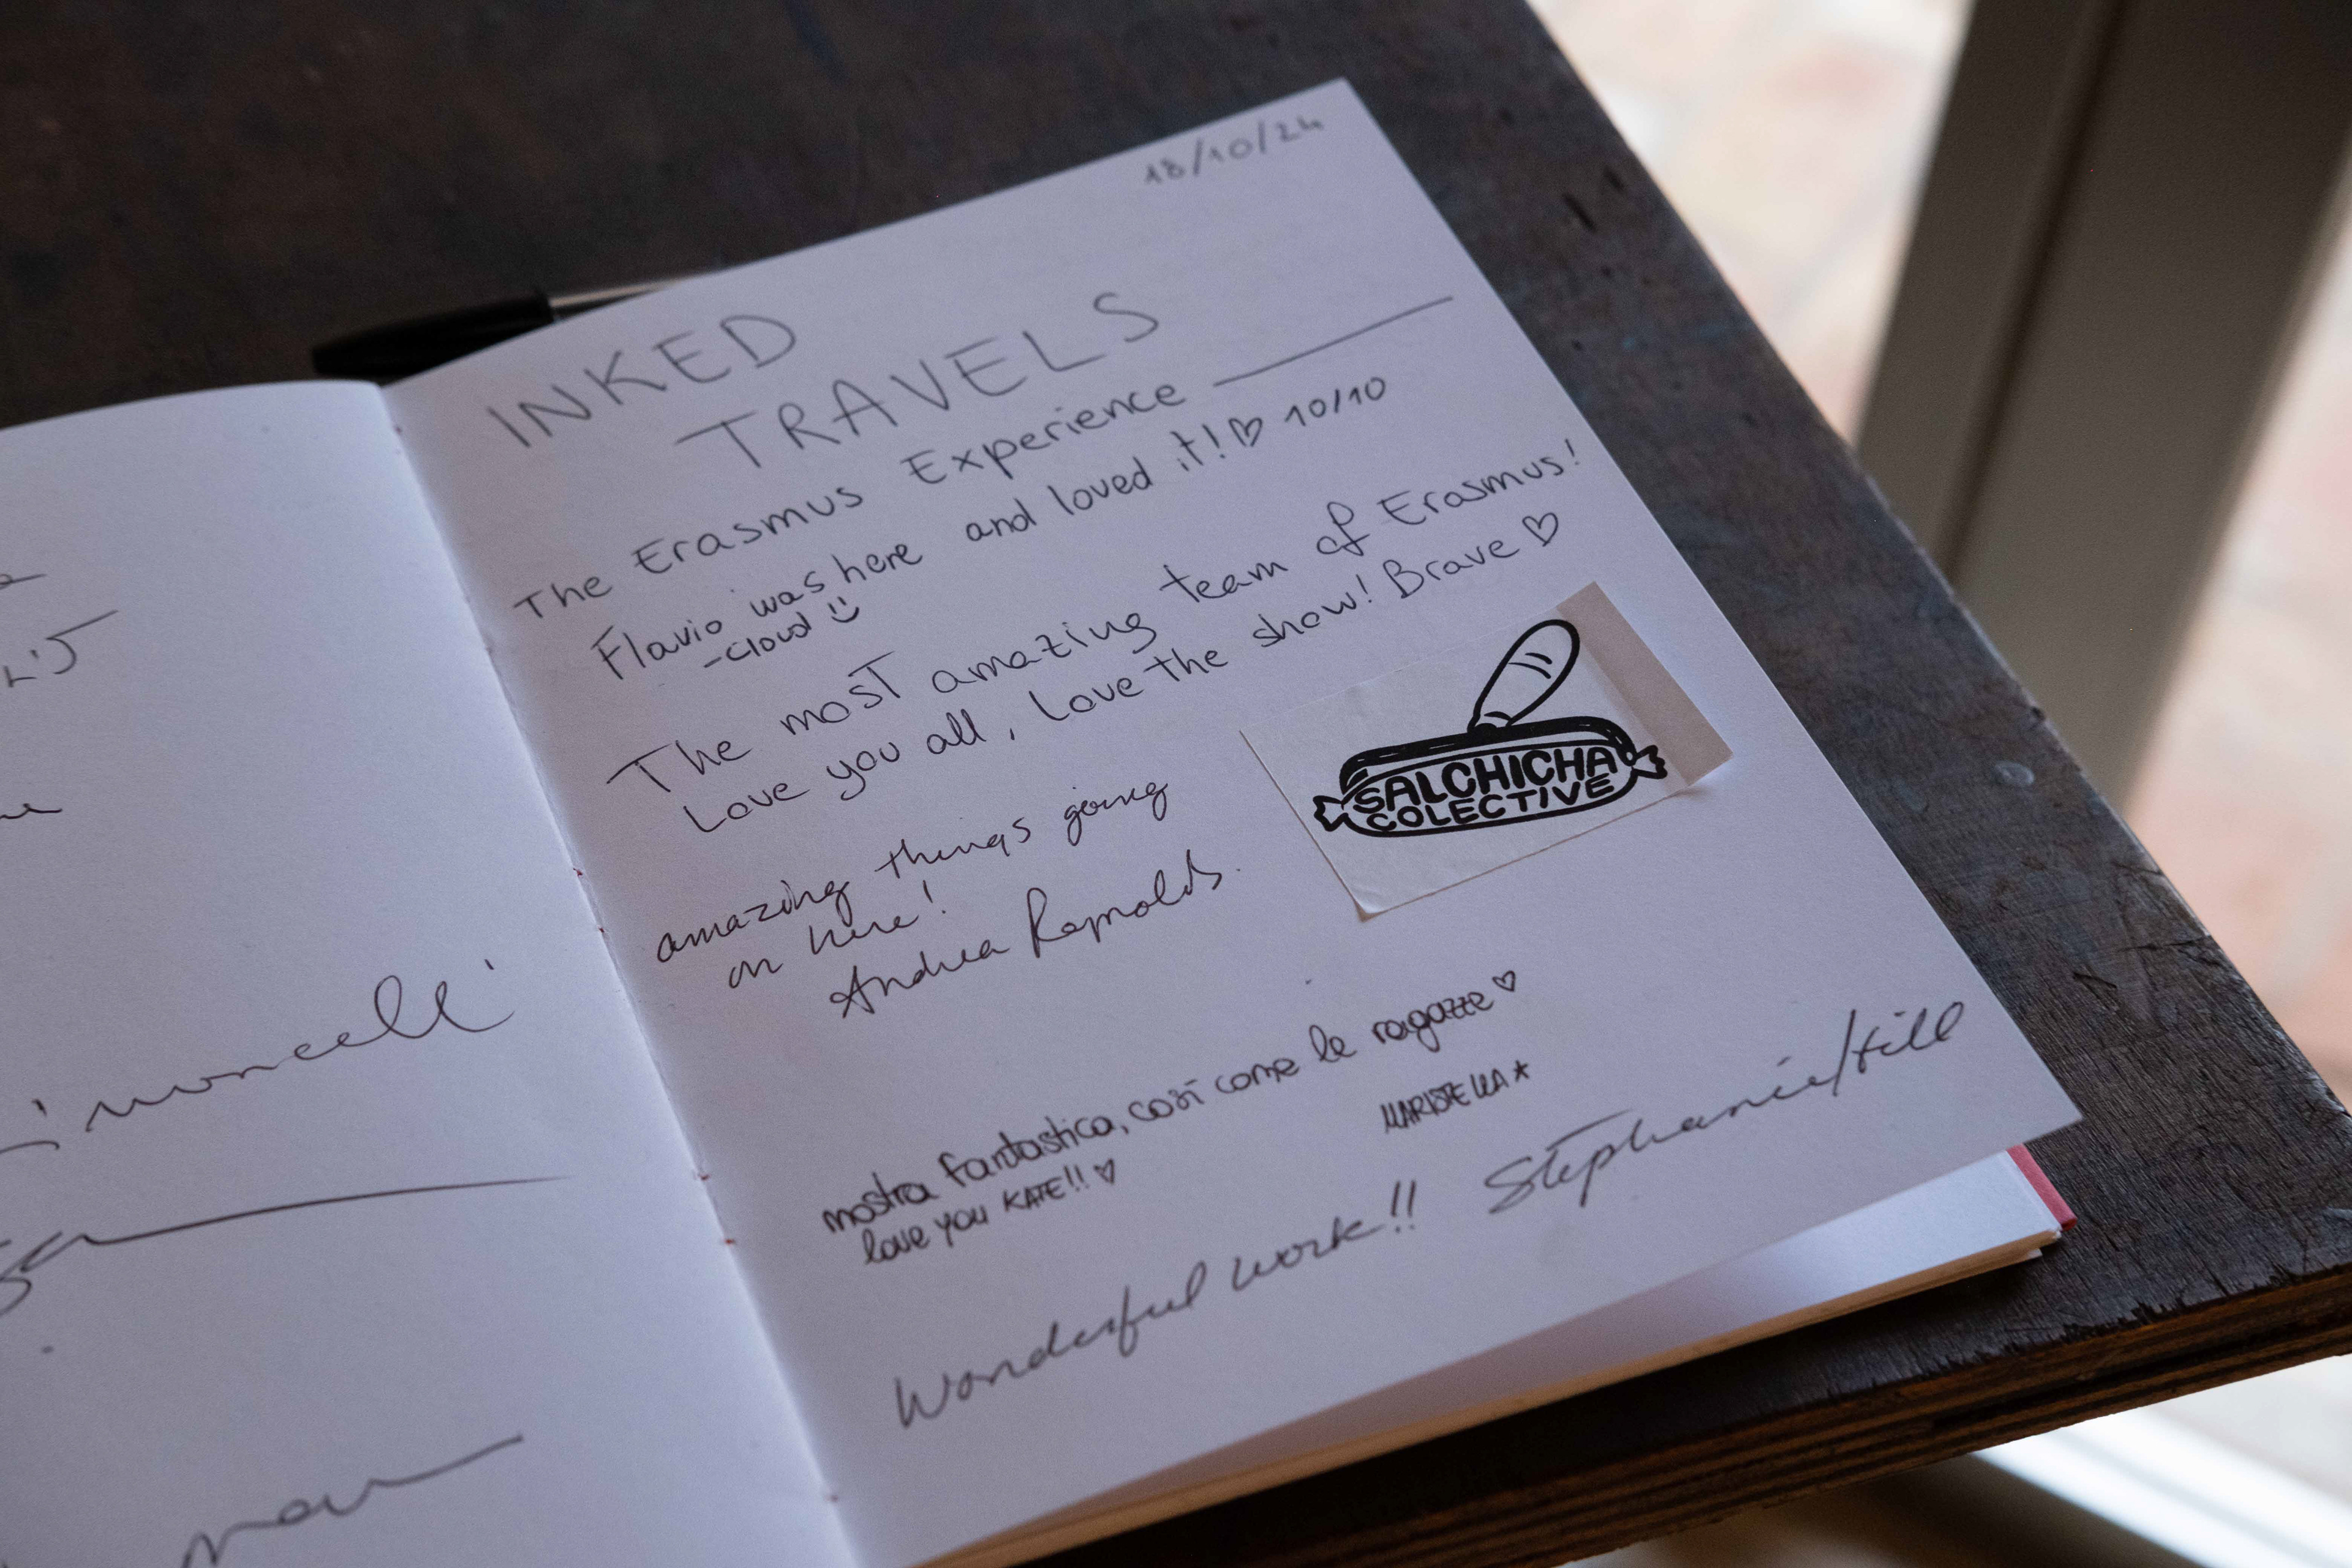 18/10/24
INKED
TRAVELS
The Erasmus Experience
Flavio was here and loved it! ♡ 10/10
-cloud
The most amazing team of Erasmus!
Love you all, Love the show! Brave ♡
SALCHICHA
COLECTIVE
amazing things going
on here!
Andrea Reynolds.
mostra fantastica, così come le ragazze ♡
love you KATE!! ♡
MARISTELLA *
Wonderful work!! Stephanie Hill